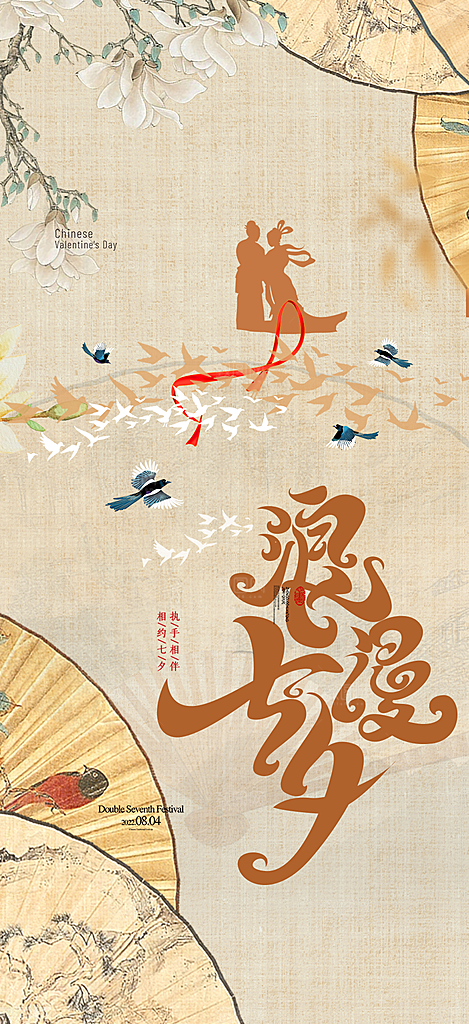 Chinese
Valentine's Day
浪漫
七夕
执/手/相/伴
相/约/七/夕
Double Seventh Festival
2022.08.04